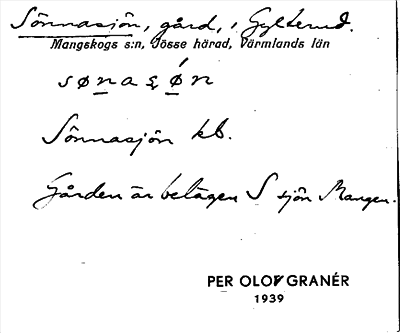 Sönnasjön, gård, i Gylterud.
Mangskogs s:n, Jösse härad, Värmlands län
sønaʂǿn
Sönnasjön kb.
Gården är belägen S sjön Mangen.
PER OLOF GRANÉR
1939